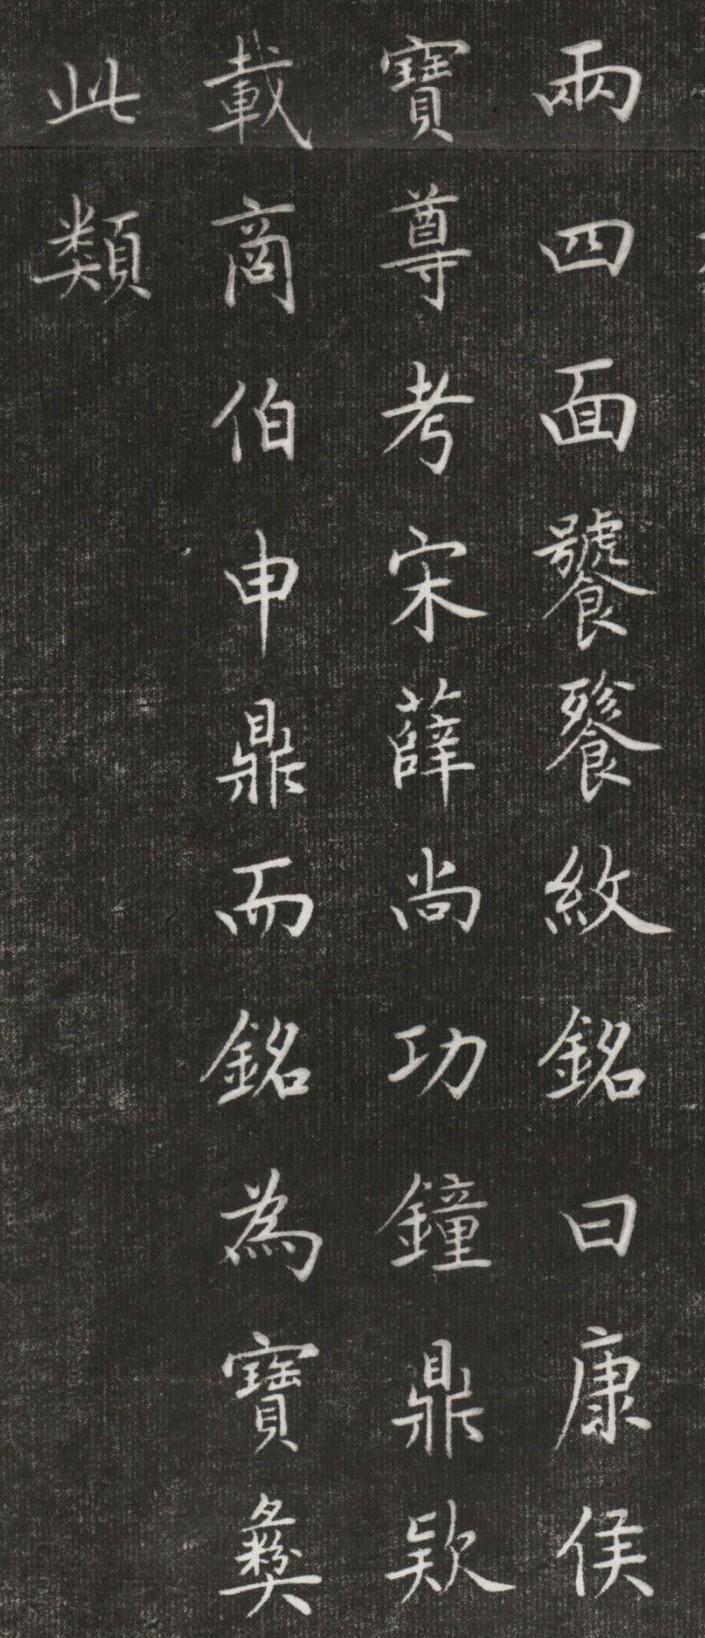 兩四面饕餮紋銘曰康侯
寶尊考宋薛尚功鐘鼎款
載商伯申鼎而銘為寶彝
此類